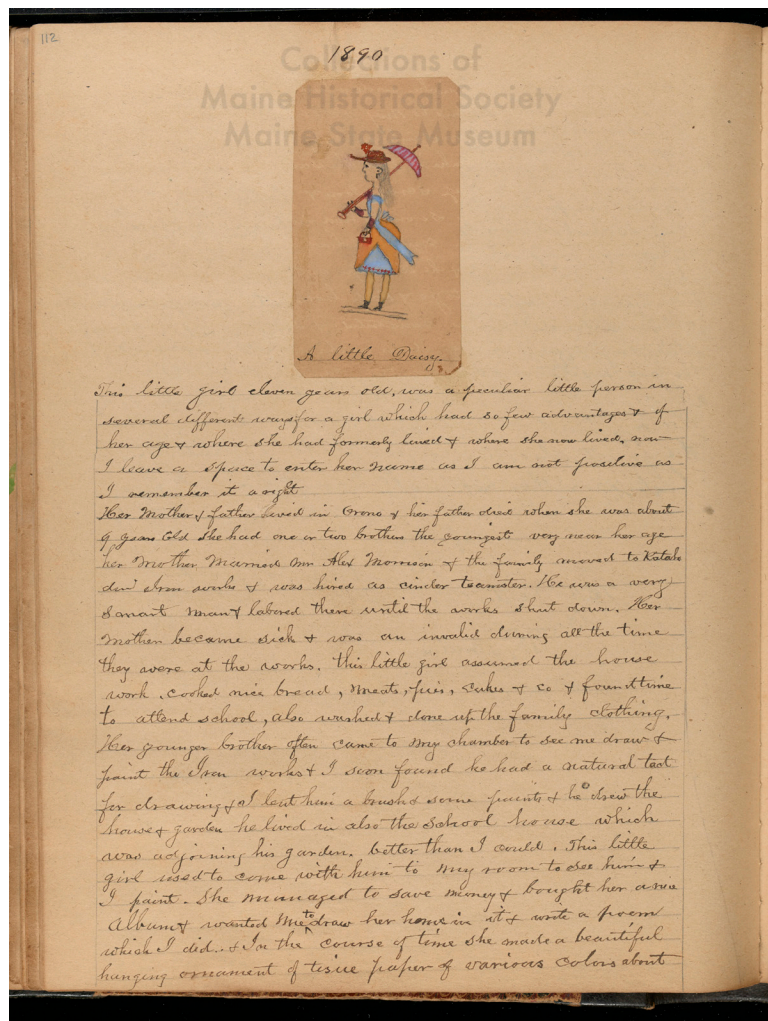 112
Collections of
1890
Maine Historical Society
Maine State Museum
A little Daisy.
This little girl eleven years old, was a peculiar little person in
several different ways for a girl which had so few advantages & of
her age & where she had formerly lived & where she now lived, now
I leave a space to enter her name as I am not positive as
I remember it aright
Her Mother & father lived in Orono & her father died when she was about
9 years old she had one or two brothers the youngest very near her age
her Mother Married Mr Alex Morrison & the family moved to Katah
din Iron works & was hired as cinder teamster. He was a very
smart man & labored there until the works shut down. Her
Mother became sick & was an invalid during all the time
they were at the works. this little girl assumed the house
work, cooked nice bread, meats, pies, cakes & co & found time
to attend school, also washed & done up the family clothing.
Her younger brother often came to my chamber to see me draw &
paint the Iron works & I soon found he had a natural tact
for drawing & I lent him a brush & some paints & he drew the
house & garden he lived in also the school house which
was adjoining his garden. better than I could. This little
girl used to come with him to my room to see him &
I paint. She managed to save money & bought her a nice
Album & wanted me to draw her home in it & write a poem
which I did. & In the course of time she made a beautiful
hanging ornament of tisue paper of various colors about